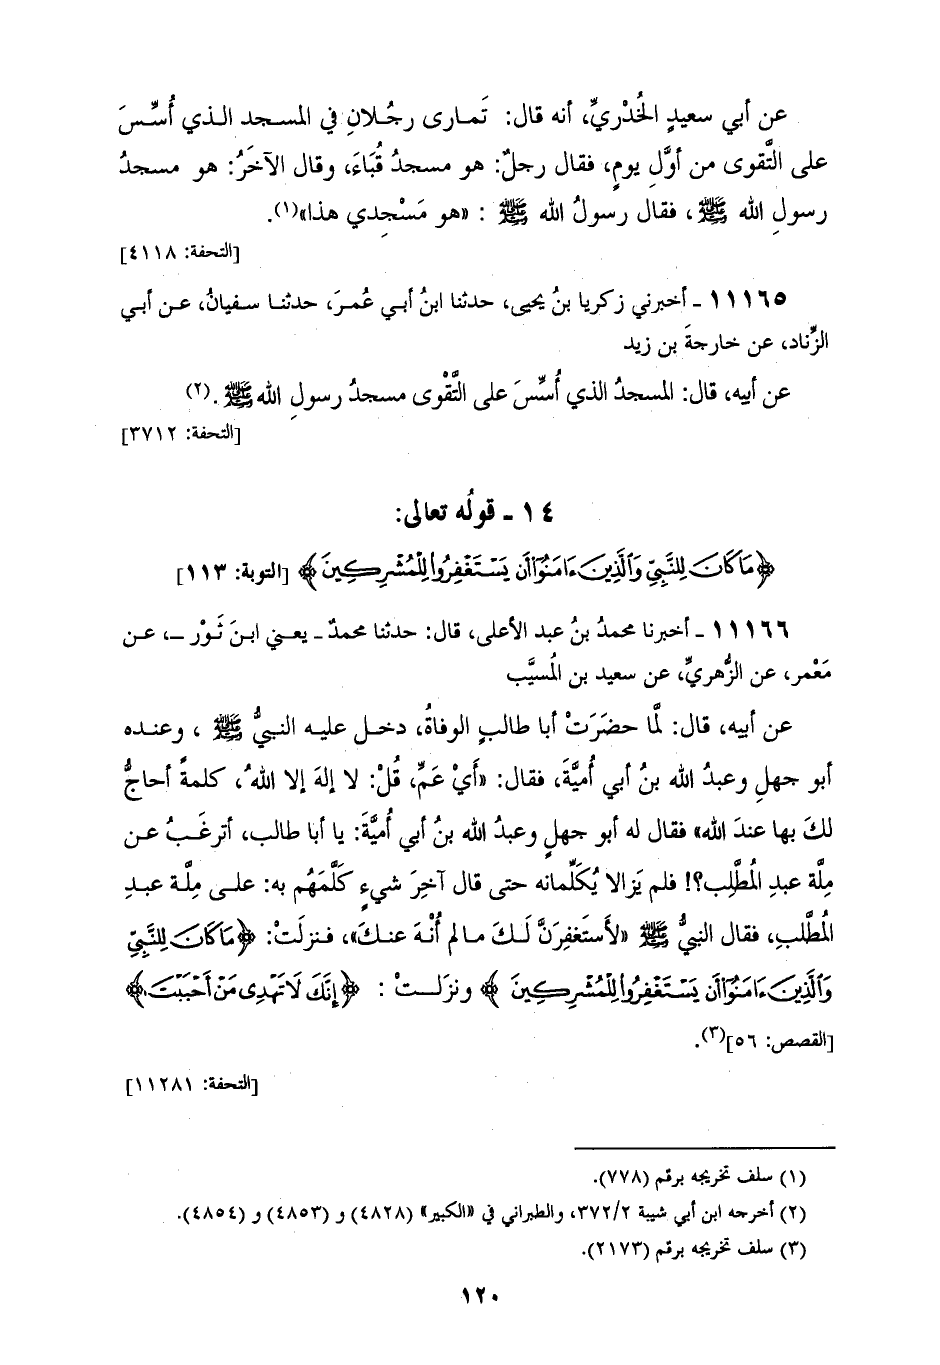 عن أبي سعيدٍ الخُدْريِّ، أنه قال: تَمارى رجُلانِ في المسجد الذي أُسِّسَ
على التَّقوى من أوَّلِ يومٍ، فقال رجلٌ: هو مسجدُ قُبَاءَ، وقال الآخَرُ: هو مسجدُ
رسولِ الله ﷺ، فقال رسولُ الله ﷺ : «هو مَسْجِدي هذا»(١).
[التحفة: ٤١١٨]
١١١٦٥ ـ أخبرني زكريا بنُ يحيى، حدثنا ابنُ أبي عُمرَ، حدثنا سفيانُ، عن أبي
الزِّناد، عن خارجةَ بن زيد
عن أبيه، قال: المسجدُ الذي أُسِّسَ على التَّقْوى مسجدُ رسولِ الله ﷺ.(٢)
[التحفة: ٣٧١٢]
١٤ ـ قولُه تعالى:
﴿مَا كَانَ لِلنَّبِيِّ وَٱلَّذِينَ ءَامَنُوٓا۟ أَن يَسْتَغْفِرُوا۟ لِلْمُشْرِكِينَ﴾ [التوبة: ١١٣]
١١١٦٦ ـ أخبرنا محمدُ بنُ عبد الأعلى، قال: حدثنا محمدٌ ـ يعني ابنَ ثَوْر ـ، عن
مَعْمر، عن الزُّهريِّ، عن سعيد بن المُسيَّب
عن أبيه، قال: لمَّا حضَرَتْ أبا طالبٍ الوفاةُ، دخل عليه النبيُّ ﷺ ، وعنده
أبو جهلٍ وعبدُ الله بنُ أبي أُميَّةَ، فقال: «أَيْ عَمِّ، قُلْ: لا إلهَ إلا اللهُ، كلمةً أُحاجُّ
لكَ بها عندَ الله» فقال له أبو جهلٍ وعبدُ الله بنُ أبي أُميَّةَ: يا أبا طالب، أترغَبُ عن
مِلَّة عبدِ المُطَّلِب؟! فلم يَزالا يُكَلِّمانه حتى قال آخِرَ شيءٍ كَلَّمَهُم به: على مِلَّة عبدِ
المُطَّلب، فقال النبيُّ ﷺ «لأَستَغفِرَنَّ لَكَ مالم أُنْهَ عنكَ»، فنزلَتْ: ﴿مَا كَانَ لِلنَّبِيِّ
وَٱلَّذِينَ ءَامَنُوٓا۟ أَن يَسْتَغْفِرُوا۟ لِلْمُشْرِكِينَ ﴾ ونزَلتْ : ﴿إِنَّكَ لَا تَهْدِى مَنْ أَحْبَبْتَ﴾
[القصص: ٥٦](٣).
[التحفة: ١١٢٨١]
(١) سلف تخريجه برقم (٧٧٨).
(٢) أخرجه ابن أبي شيبة ٣٧٢/٢، والطبراني في «الكبير» (٤٨٢٨) و (٤٨٥٣) و (٤٨٥٤).
(٣) سلف تخريجه برقم (٢١٧٣).
١٢٠